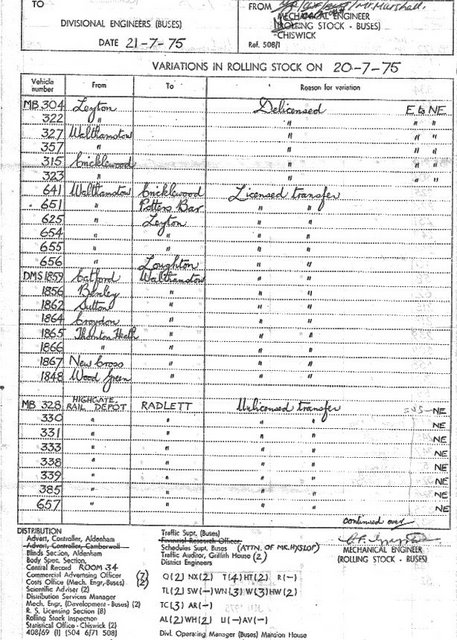 TO
DIVISIONAL ENGINEERS (BUSES)
DATE 21-7-75
FROM Mr. Marshall.
MECHANICAL ENGINEER
(ROLLING STOCK - BUSES)
CHISWICK
Ref. 508/1
VARIATIONS IN ROLLING STOCK ON 20-7-75
Vehicle number From To Reason for variation
MB 304 Leyton Delicensed E to NE
322 " " " "
327 Walthamstow " " "
357 " " " "
315 Cricklewood " " "
323 " " " "
641 Walthamstow Cricklewood Licensed transfer
651 " Potters Bar " "
625 " Leyton " "
654 " " " "
655 " " " "
656 " Loughton " "
DMS 1859 Catford Walthamstow " "
1856 Bexley " " "
1862 Sutton " " "
1864 Croydon " " "
1865 Thornton Heath " " "
1866 " " " "
1867 New Cross " " "
1848 Wood Green " " "
MB 328 HIGHGATE RAIL DEPOT RADLETT Unlicensed transfer NE
330 " " " " NE
331 " " " " NE
333 " " " " NE
338 " " " " NE
339 " " " " NE
385 " " " " NE
657 " " " " NE
continued over
MECHANICAL ENGINEER
(ROLLING STOCK - BUSES)
DISTRIBUTION
Advert. Controller, Aldenham
Advert. Controller, Camberwell
Blinds Section, Aldenham
Body Spec. Section,
Central Record ROOM 34
Commercial Advertising Officer (2)
Costs Office (Mech. Engr. Buses) (2)
Scientific Adviser (2)
Distribution Services Manager
Mech. Engr. (Development - Buses) (2)
R. S. Licensing Section (8)
Rolling Stock Inspection
Statistics Office - Chiswick (2)
408/69 (1) (S04 6/71 508)
Traffic Supt. (Buses)
Financial Research Officer
Schedules Supt. Buses (ATTN. OF MR. HYSLOP)
Traffic Auditor, Griffith House (2)
District Engineers
Q(2) NX(2) T(4) HT(2) R(-)
TL(2) SW(-) WN(3) W(3) HW(2)
TC(3) AR(-)
AL(2) WH(2) U(-) AV(-)
Divl. Operating Manager (Buses) Mansion House